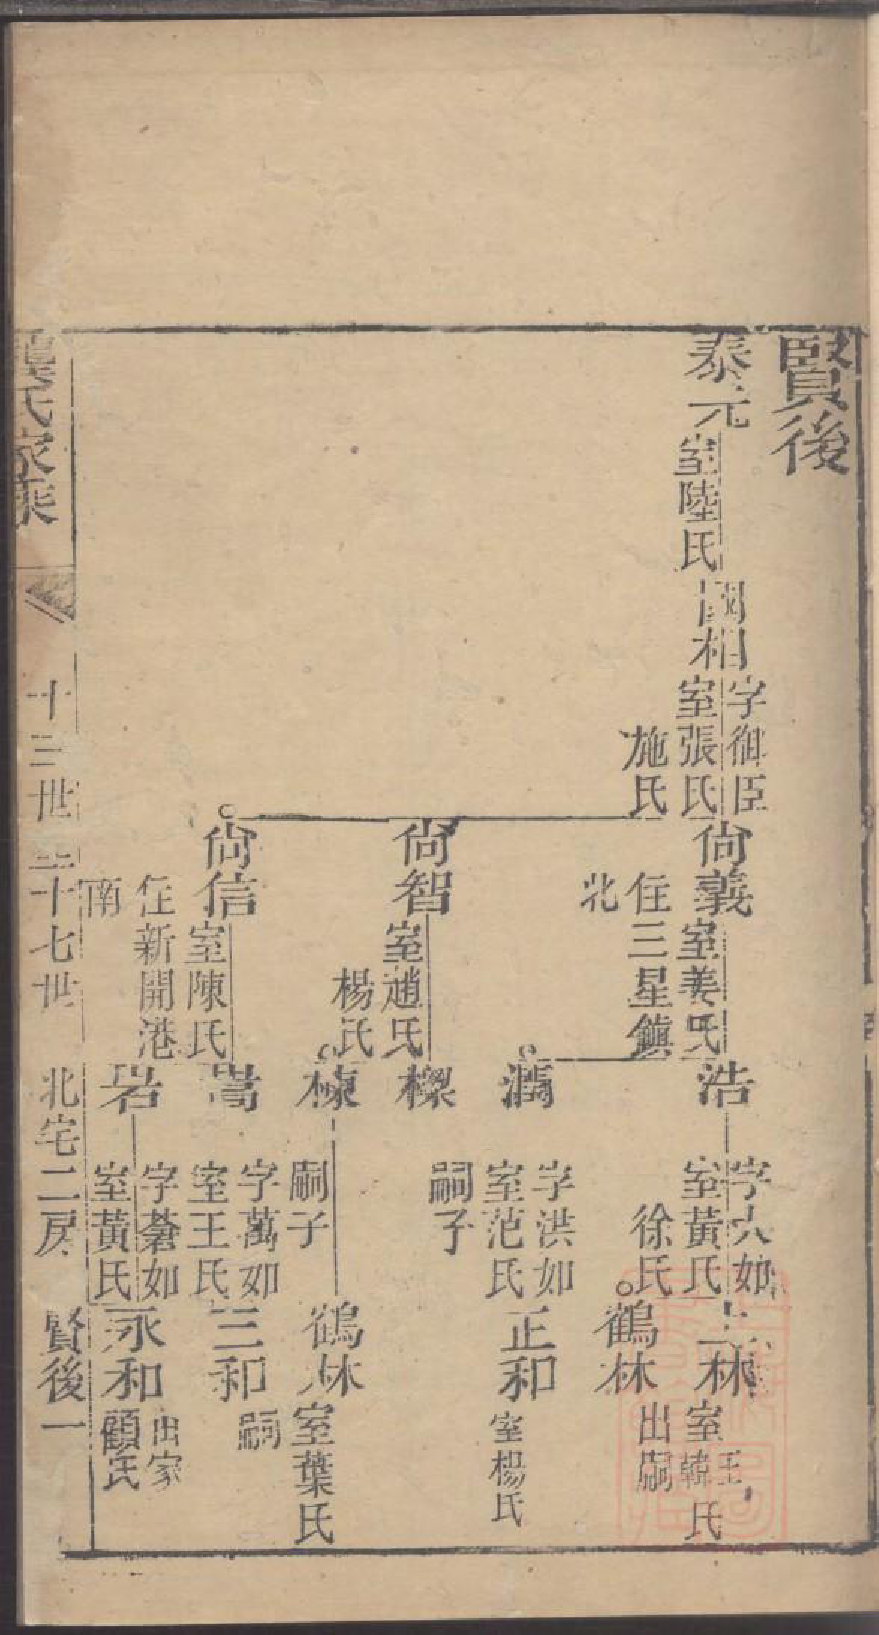 賢後
泰元
室陸氏
國相
字御臣
室張氏
施氏
尙義
室姜氏
住三星鎮
北
尙智
室趙氏
楊氏
尙信
室陳氏
住新開港
南
浩
字大如
室黃氏
徐氏
潤
字洪如
室范氏
嗣子
樑
棟
嗣子
嵩
字萬如
室王氏
岩
字磊如
室黃氏
上林
室王韓氏
鶴林
出嗣
正和
室楊氏
鶴林
室葉氏
三和
嗣
永和
出家
顧氏
龔氏家乘
十三世至十七世
北宅二房
賢後一